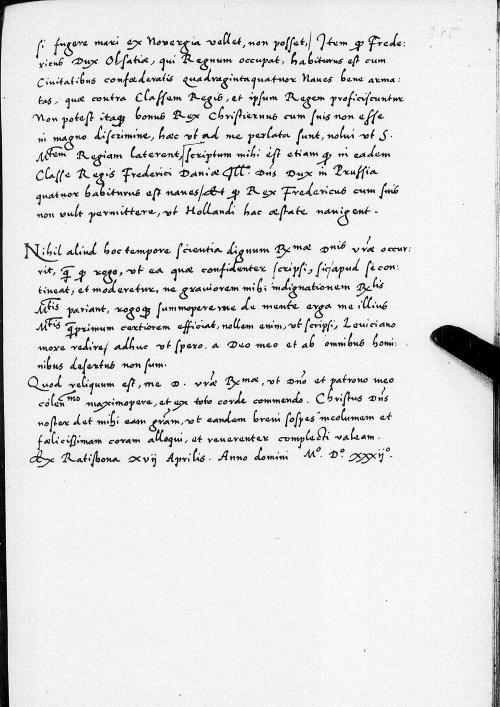 si fugere mari ex Novergia vellet, non posset,/ Item qđ Frede:
ricus Dux Olsatiæ, qui Regnum occupat, habiturus est cum
Civitatibus confœderatis quadragintaquatuor Naues bene arma:
tas, quæ contra Classem Regis, et ipsum Regem proficiscuntur
Non potest itaq; bonus Rex Christiernus cum suis non esse
in magno discrimine, hac vt ad me perlata sunt, nolui vt S.
Mtem Regiam laterent, scriptum mihi est etiam qđ in eadem
Classe Regis Frederici Daniæ Ill. Dns Dux in Prussia
quatuor habiturus est naues/ Et qđ Rex Fredericus cum suis
non vult permittere, vt Hollandi hac æstate nauigent.
Nihil aliud hoc tempore scientia dignum Rmæ Dnis vræ occur:
rit, qđ rogo, vt ea quæ confidenter scripsi, apud se con:
tineat, et moderetur, ne grauiorem mihi indignationem Rlis
Mtis pariant, rogoq; summopere me de mente erga me illius
Mtis qprimum certiorem efficiat, nollem enim, vt scripsi, Louiciano
more redire/ adhuc vt spero, a Deo meo et ab omnibus homi:
nibus desertus non sum.
Quod reliquum est, me D. vræ Rmæ, vt Dno et patrono meo
colenmo maximopere, et ex toto corde commendo. Christus Dns
noster det mihi eam gram, vt eandem breui sospes incolumem et
fœlicissimam coram alloqui, et reuerenter complecti valeam.
Ex Ratisbona xvij Aprilis. Anno domini Mo. Do. xxxijo.